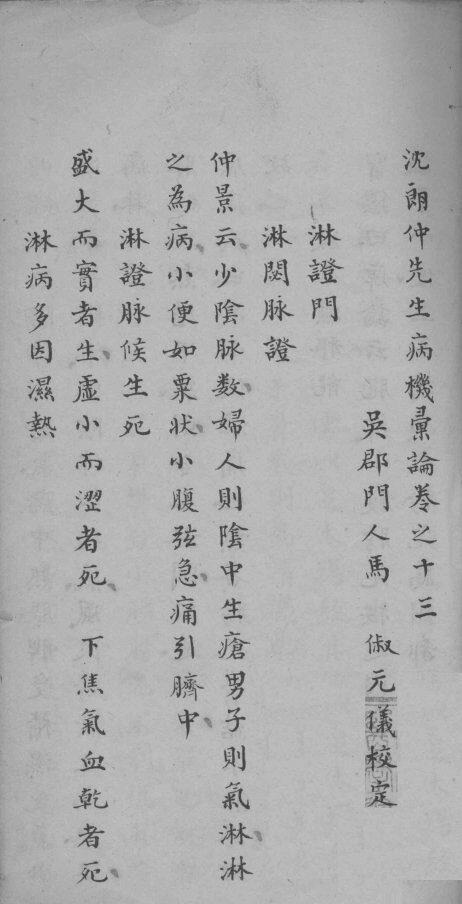 沈朗仲先生病機彙論卷之十三
吳郡門人馬 俶元儀校定
淋證門
淋閟脉證
仲景云少陰脉数婦人則陰中生瘡男子則氣淋淋
之為病小便如粟狀小腹弦急痛引臍中
淋證脉候生死
盛大而實者生虛小而澀者死 下焦氣血乾者死
淋病多因濕熱